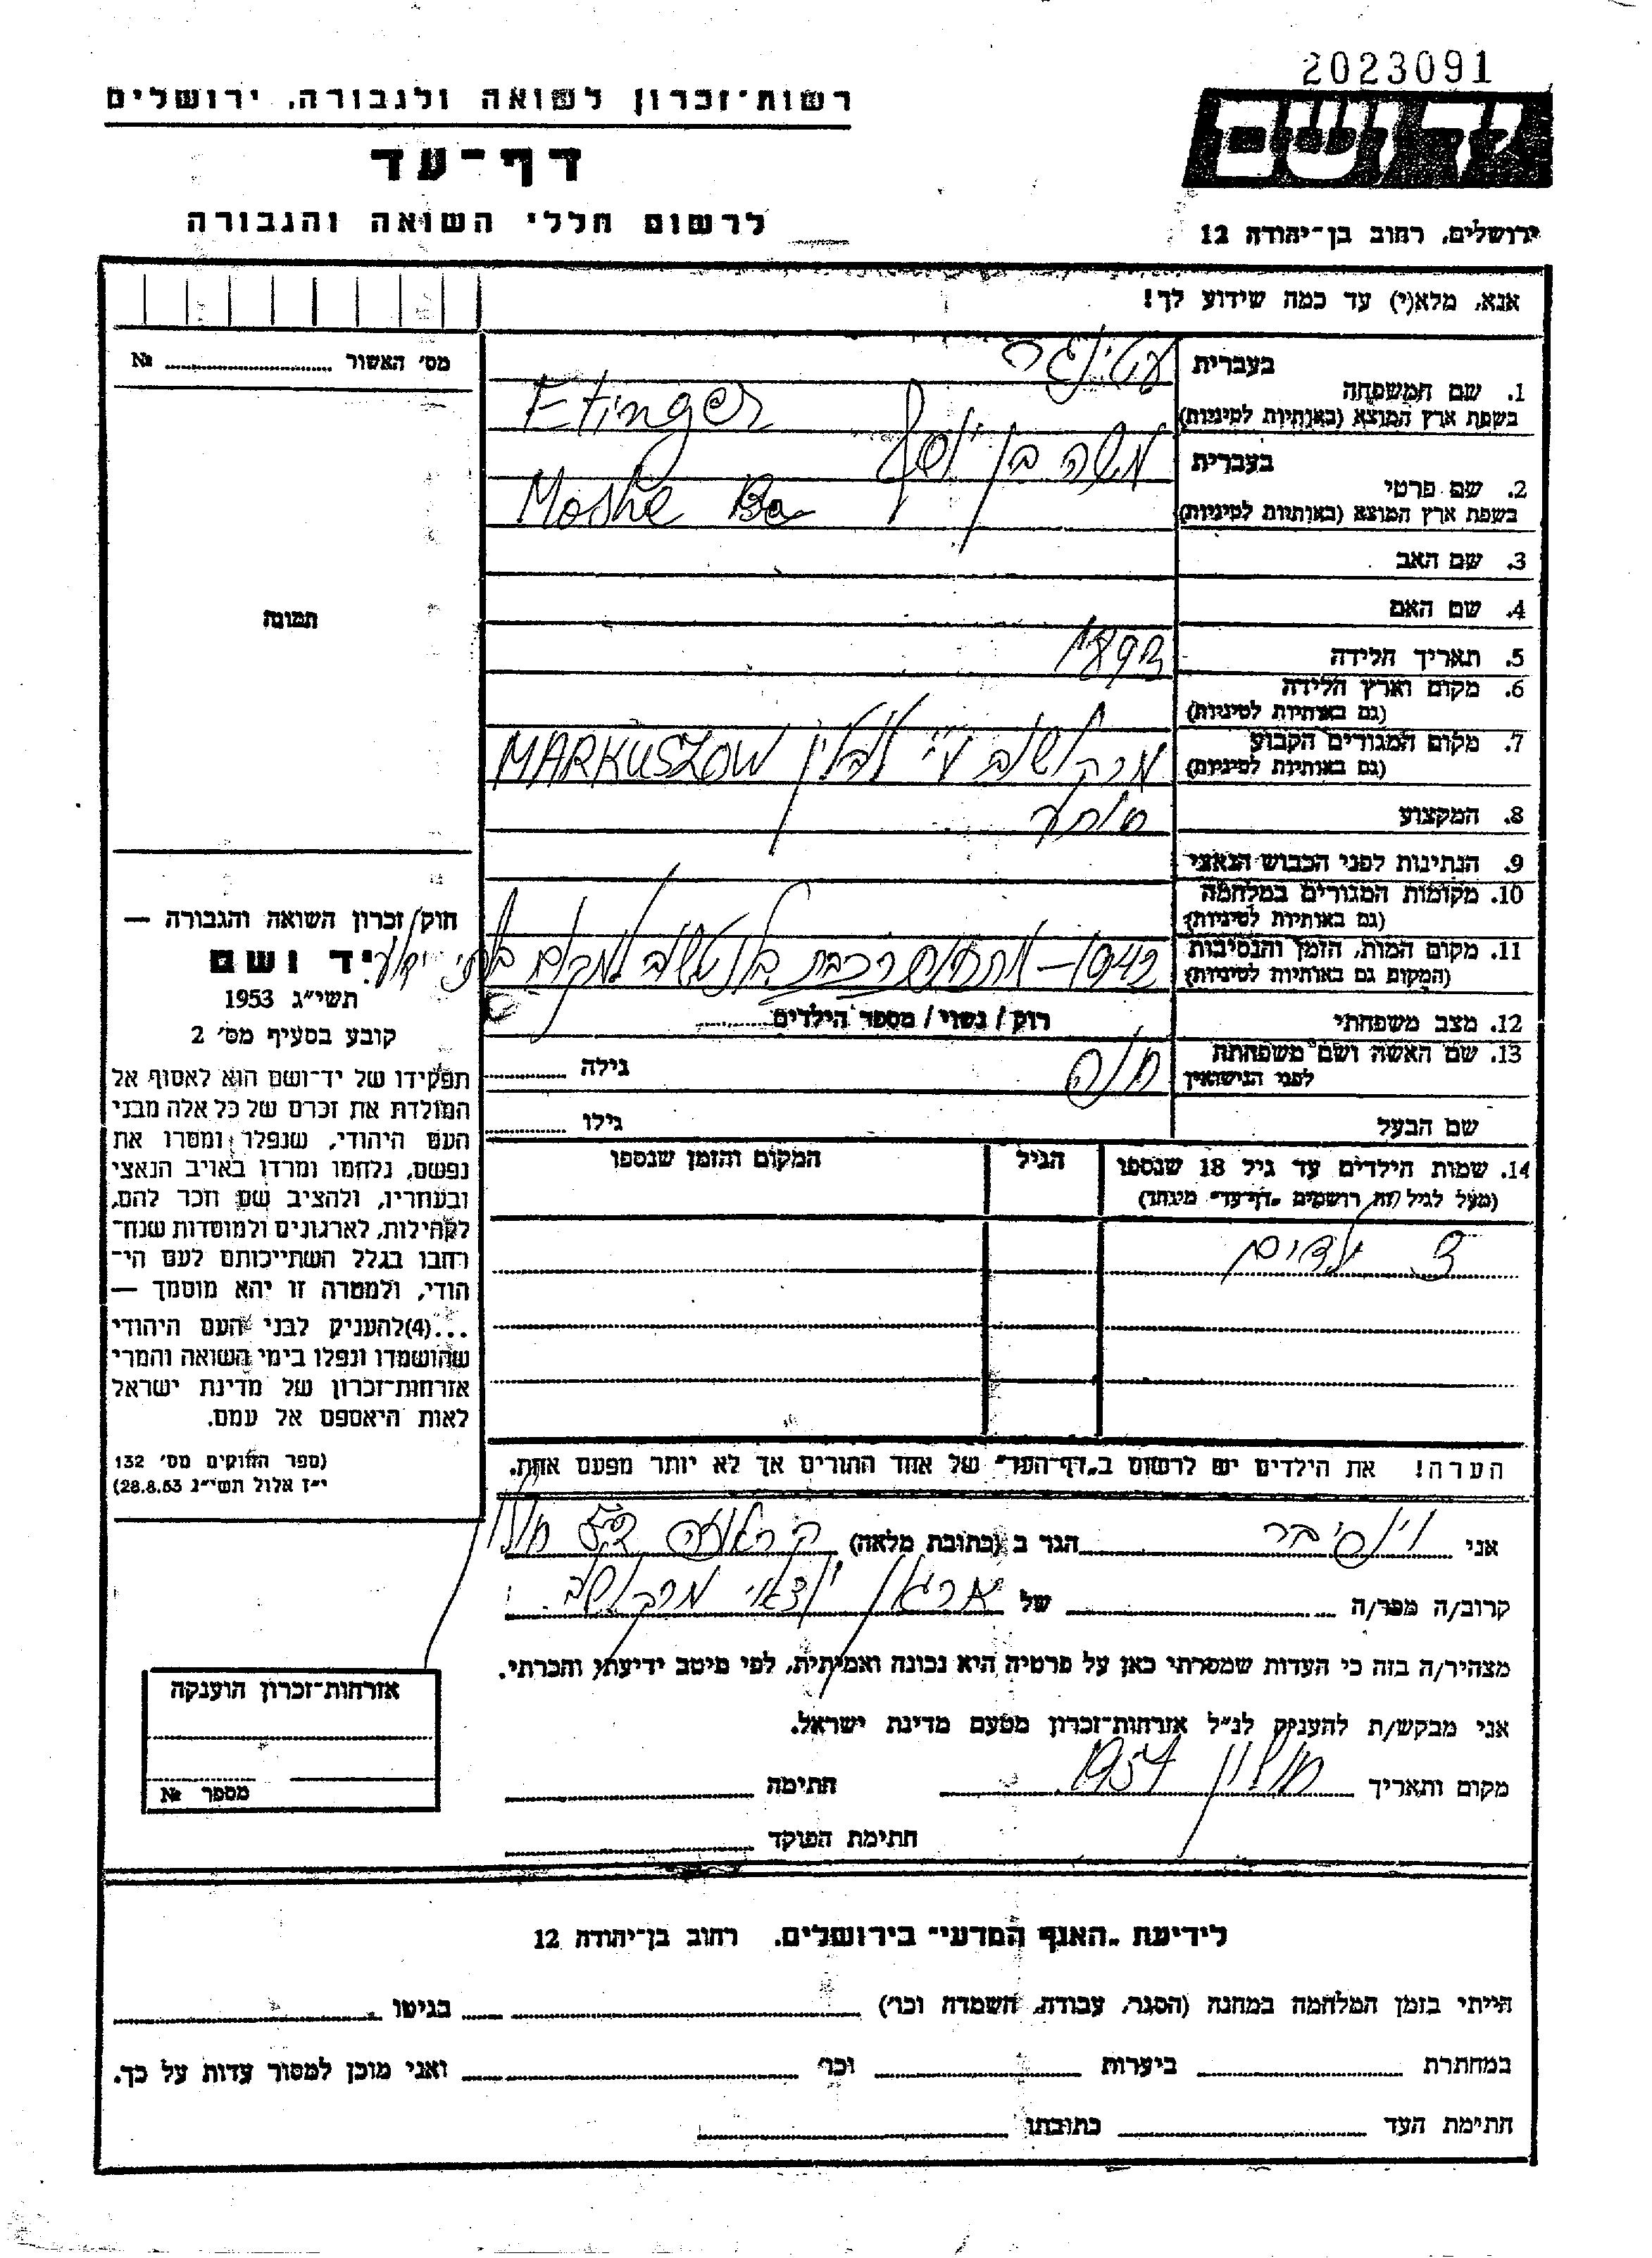 2023091
יד ושם
ירושלים, רחוב בן־יהודה 12
רשות־זכרון לשואה ולגבורה, ירושלים
דף־עד
לרשום חללי השואה והגבורה
אנא, מלא(י) עד כמה שידוע לך!
מס׳ האשור № 
תמונה
בעברית
1. שם המשפחה
בשפת ארץ המוצא (באותיות לטיניות) Etinger
בעברית משה בן יוסף
2. שם פרטי
בשפת ארץ המוצא (באותיות לטיניות) Moshe Ba
3. שם האב
4. שם האם
5. תאריך הלידה
6. מקום וארץ הלידה
(גם באותיות לטיניות)
7. מקום המגורים הקבוע
(גם באותיות לטיניות) מרקושוב ע״י לובלין MARKUSZOW
8. המקצוע סוחר
9. הנתינות לפני הכבוש הנאצי
10. מקומות המגורים במלחמה
(גם באותיות לטיניות)
11. מקום המות, הזמן והנסיבות
(המקום גם באותיות לטיניות) 1942 – למקום בלתי ידוע
12. מצב משפחתי רוק / נשוי / מספר הילדים
13. שם האשה ושם משפחתה
לפני הנישואין חנה גילה
שם הבעל גילו
14. שמות הילדים עד גיל 18 שנספו הגיל המקום והזמן שנספו
(מעל לגיל זה רושמים „דף־עד״ מיוחד)
3 ילדים
הערה! את הילדים יש לרשום ב„דף־העד״ של אחד ההורים אך לא יותר מפעם אחת.
חוק זכרון השואה והגבורה —
יד ושם
תשי״ג 1953
קובע בסעיף מס׳ 2
תפקידו של יד־ושם הוא לאסוף אל
המולדת את זכרם של כל אלה מבני
העם היהודי, שנפלו ומסרו את
נפשם, נלחמו ומרדו באויב הנאצי
ובעוזריו, ולהציב שם וזכר להם,
לקהילות, לארגונים ולמוסדות שנח־
רחבו בגלל השתייכותם לעם הי־
הודי, ולמטרה זו יהא מוסמך —
...(4)להעניק לבני העם היהודי
שהושמדו ונפלו בימי השואה והמרי
אזרחות־זכרון של מדינת ישראל
לאות היאספם אל עמם.
(ספר החוקים מס׳ 132
י״ז אלול תשי״ג 28.8.53)
אני וינריבר הגר ב (כתובת מלאה)
קרוב/ה מכר/ה של ארגון יוצאי מרקושוב
מצהיר/ה בזה כי העדות שמסרתי כאן על פרטיה היא נכונה ואמיתית, לפי מיטב ידיעתי והכרתי.
אני מבקש/ת להעניק לנ״ל אזרחות־זכרון מטעם מדינת ישראל.
מקום ותאריך חולון 1957 חתימה
חתימת הפוקד
אזרחות־זכרון הוענקה
מספר №
לידיעת „האגף המדעי״ בירושלים, רחוב בן־יהודה 12
הייתי בזמן המלחמה במחנה (הסגר, עבודה, השמדה וכו׳) בגיטו
במחתרת ביערות וכו׳ ואני מוכן למסור עדות על כך.
חתימת העד כתובתו